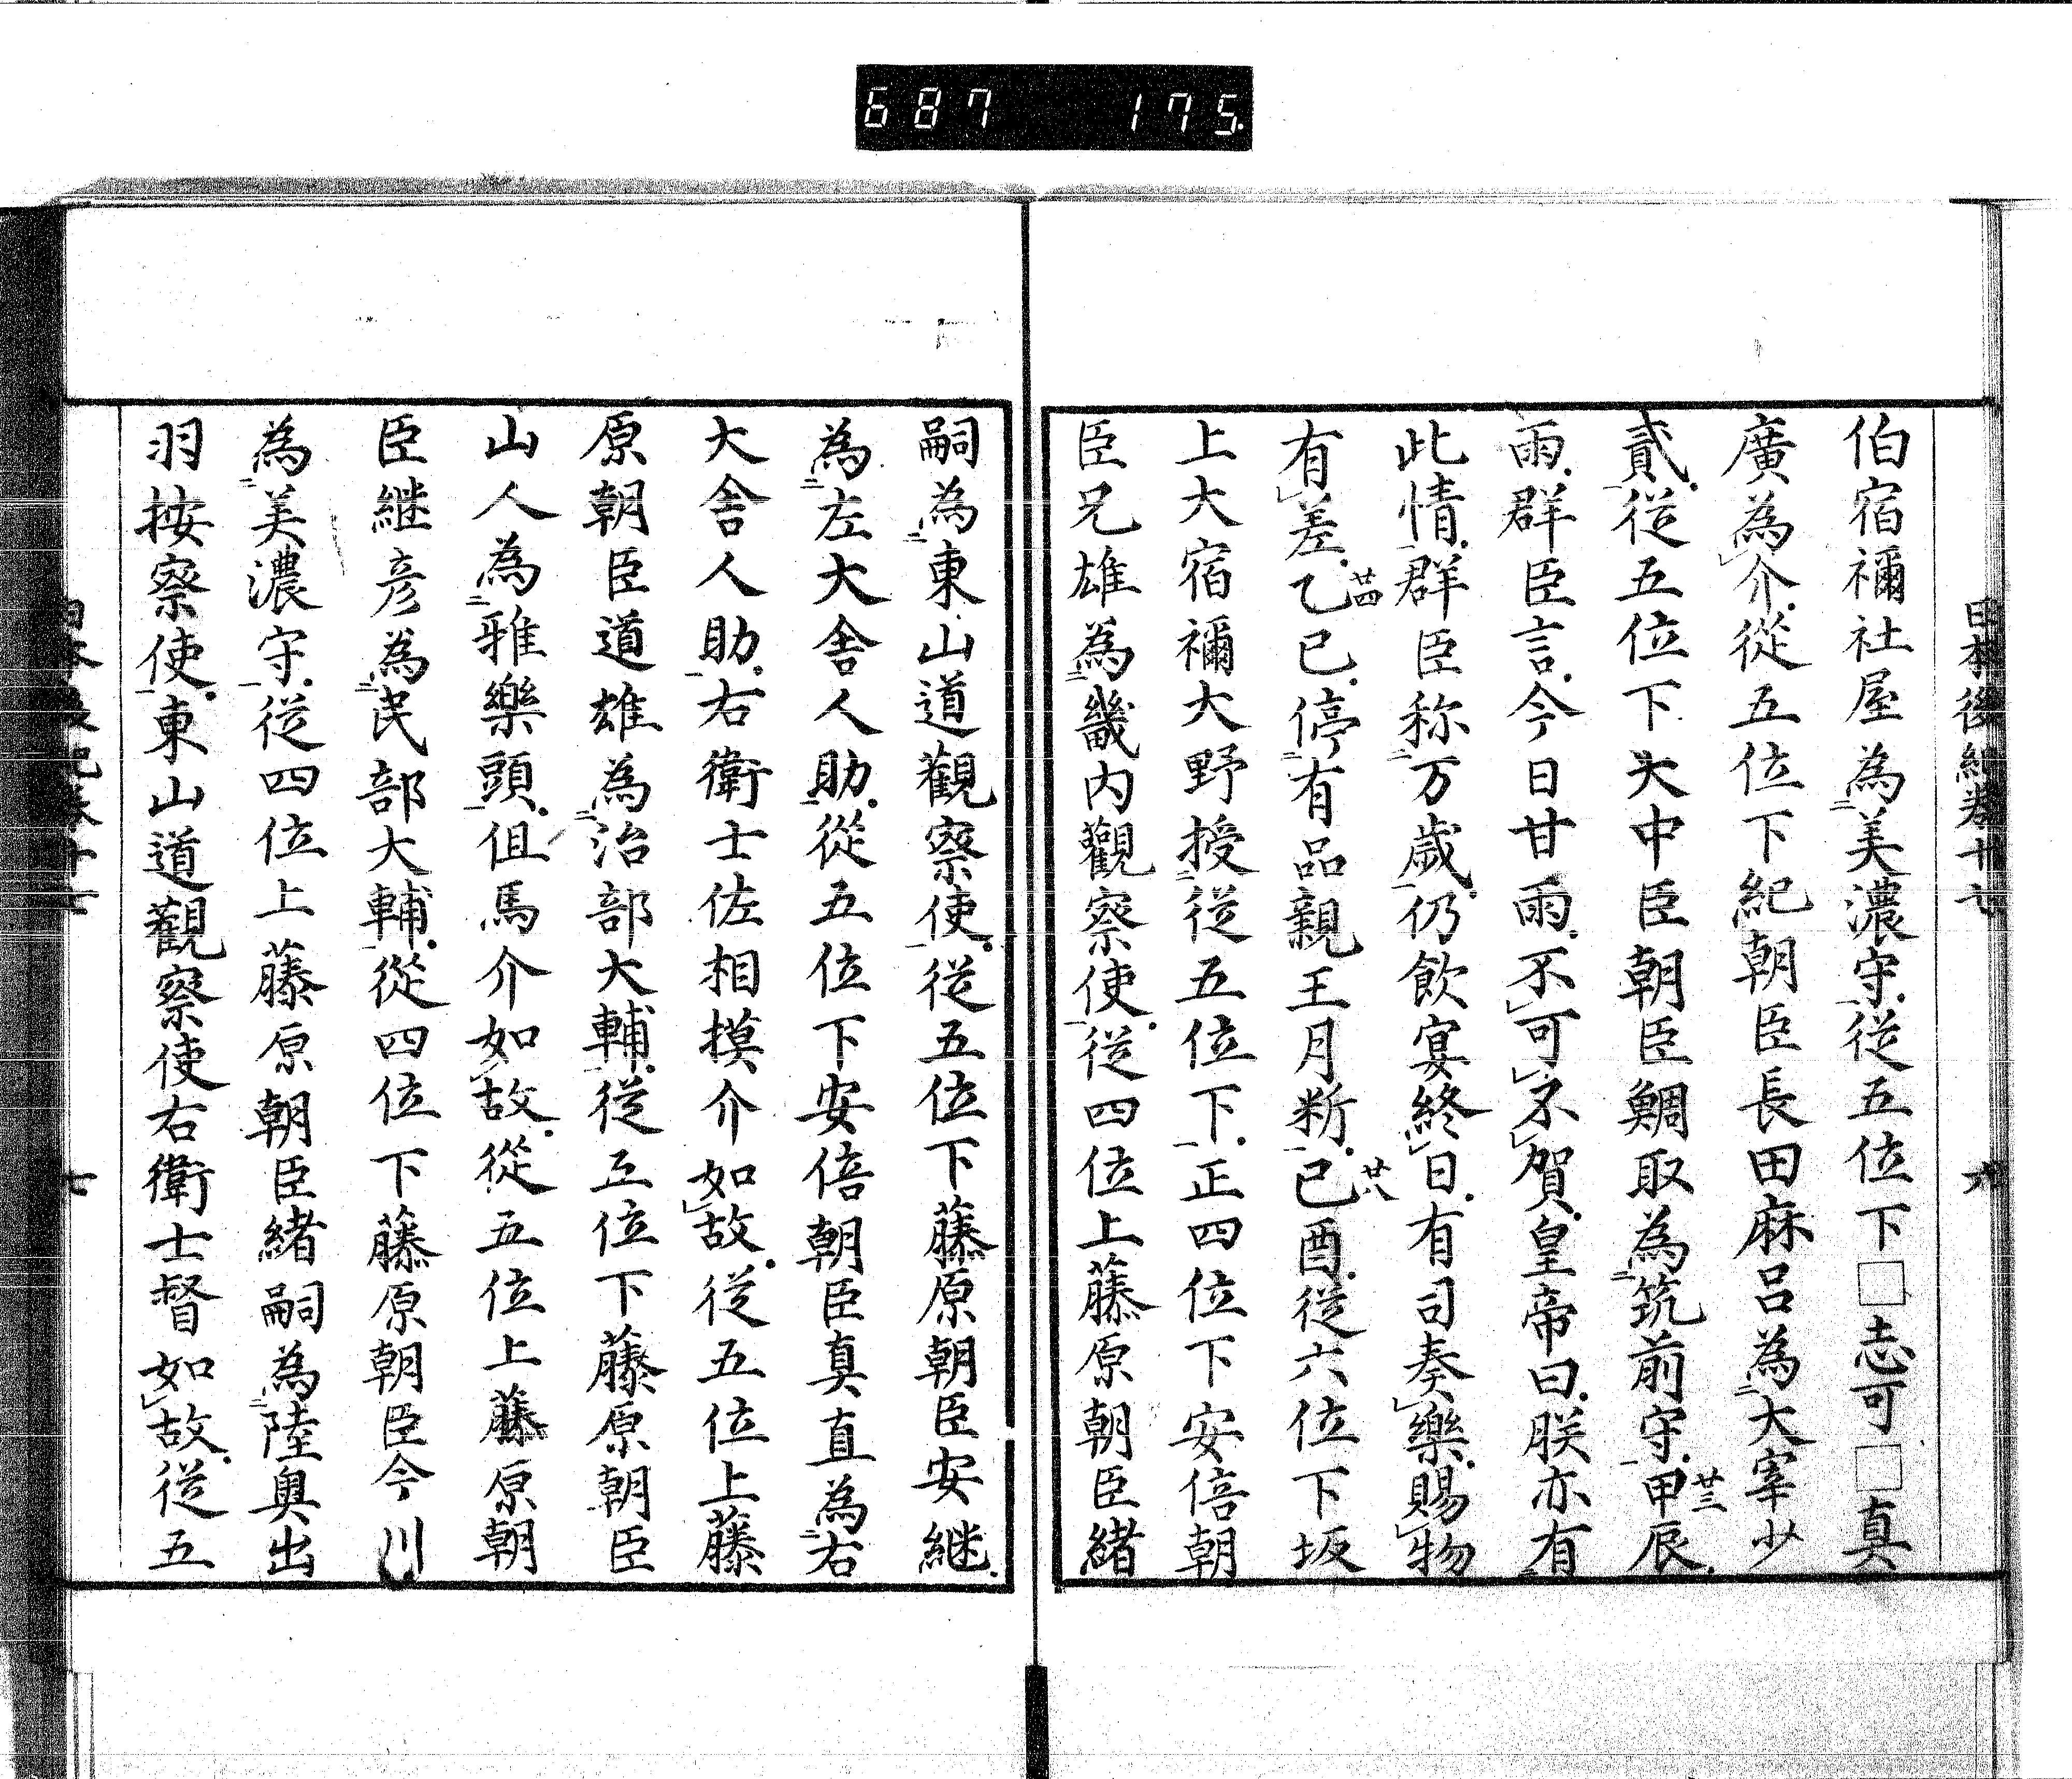 687 175
日本後紀卷十七 六
伯宿禰社屋為美濃守從五位下□志可□真
廣為介從五位下紀朝臣長田麻呂為大宰少
貳從五位下大中臣朝臣鯛取為筑前守廿三甲辰
雨群臣言今日甘雨不可不賀皇帝曰朕亦有
此情群臣称万歲仍飲宴終日有司奏樂賜物
有差廿四乙巳停有品親王月料廿八己酉從六位下坂
上大宿禰大野授從五位下正四位下安倍朝
臣兄雄為畿内觀察使從四位上藤原朝臣緒
嗣為東山道觀察使從五位下藤原朝臣安継
為左大舎人助從五位下安倍朝臣真直為右
大舎人助右衛士佐相摸介如故從五位上藤
原朝臣道雄為治部大輔從五位下藤原朝臣
山人為雅樂頭但馬介如故從五位上藤原朝
臣継彦為民部大輔從四位下藤原朝臣今川
為美濃守從四位上藤原朝臣緒嗣為陸奥出
羽按察使東山道觀察使右衛士督如故從五
日本後紀卷十七 七